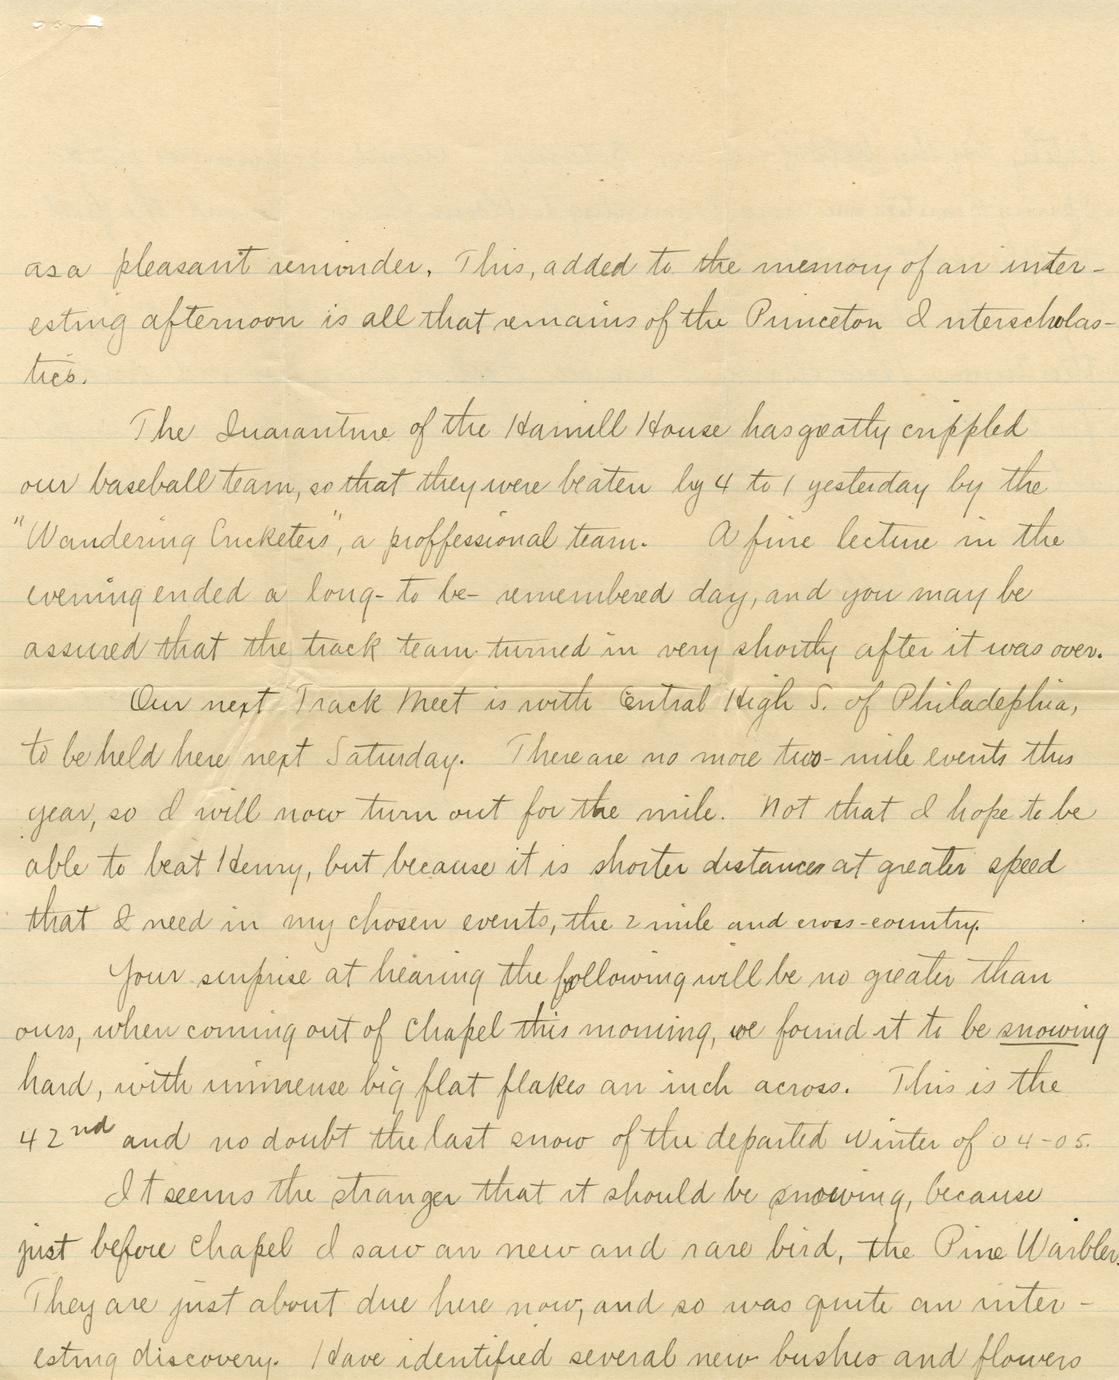 as a pleasant reminder. This, added to the memory of an inter-
esting afternoon is all that remains of the Princeton Interscholas-
tics.
The Quarantine of the Hamill House has greatly crippled
our baseball team, so that they were beaten by 4 to 1 yesterday by the
"Wandering Cricketers", a proffessional team. A fine lecture in the
evening ended a long-to be-remembered day, and you may be
assured that the track team turned in very shortly after it was over.
Our next Track Meet is with Central High S. of Philadephia,
to be held here next Saturday. There are no more two-mile events this
year, so I will now turn out for the mile. Not that I hope to be
able to beat Henry, but because it is shorter distances at greater speed
that I need in my chosen events, the 2 mile and cross-country.
Your surprise at hearing the following will be no greater than
ours, when coming out of Chapel this morning, we found it to be snowing
hard, with immense big flat flakes an inch across. This is the
42nd and no doubt the last snow of the departed Winter of 04-05.
It seems the stranger that it should be snowing, because
just before Chapel I saw an new and rare bird, the Pine Warbler.
They are just about due here now, and so was quite an inter-
esting discovery. Have identified several new bushes and flowers